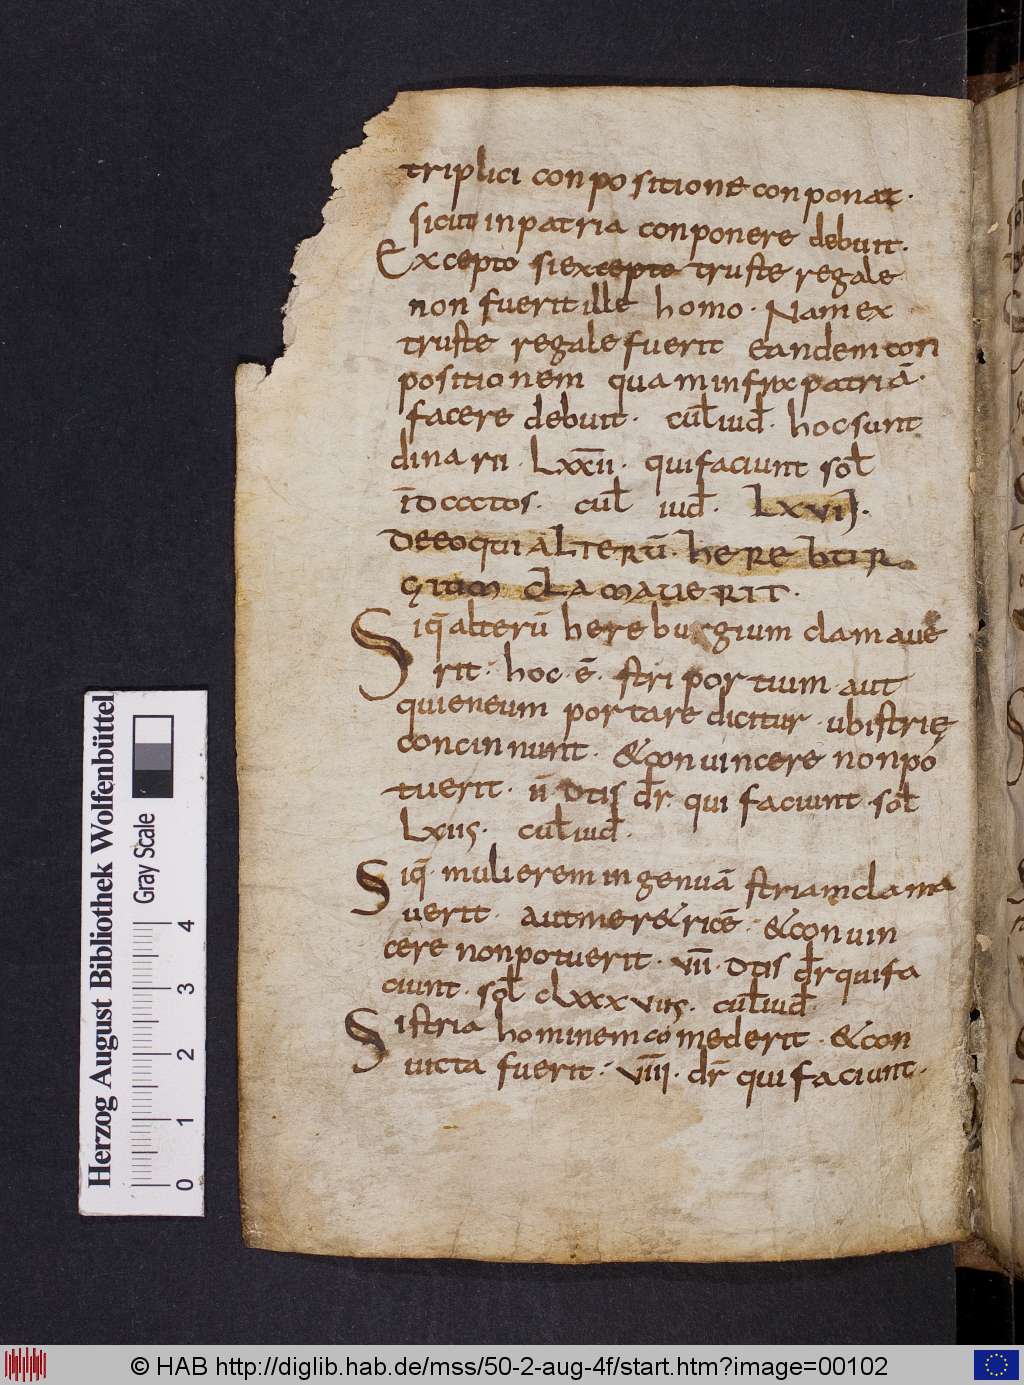 triplici conpositione conponat.
sicut in patria conponere debuit.
Excepto si excepto truste regale
non fuerit ille homo. Nam ex
truste regale fuerit eandem con
positionem quam infra patriā.
facere debuit. cul̄ iud̄. hoc sunt
dinarii. Lxx̄ii. qui faciunt sol̄
īdcccctos. cul̄ iud̄. Lxvij.
De eo qui alterū. herebur
gium clamauerit.
Siq̄ alterū hereburgium clamaue
rit. hoc ē. striportium aut
qui eneum portare dicitur. ubi strię
concinnunt. &conuincere non po
tuerit. īī dtis dr̄. qui faciunt sol̄
Lxiis. cul̄ iud̄.
Siq̄. mulierem ingenuā striam clama
uerit. aut mer&ricē. &conuin
cere non potuerit. vīī. dtis dr̄ quifa
ciunt. sol̄ cLxxxviis. cul̄ iud̄
Si stria hominem comederit. &con
uicta fuerit. vīīīī. dr̄ qui faciunt.
Herzog August Bibliothek Wolfenbüttel
Gray Scale
0 1 2 3 4
© HAB http://diglib.hab.de/mss/50-2-aug-4f/start.htm?image=00102